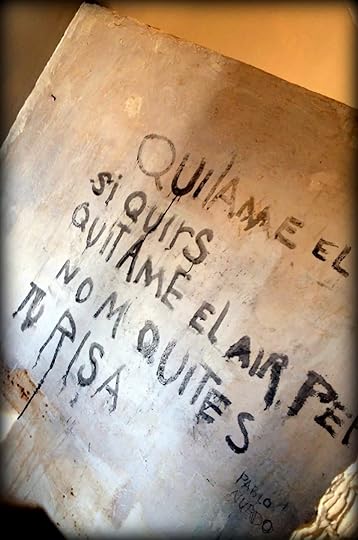 QUITAME EL
SI QUIRS
QUITAME EL AIR PER
NO M QUITES
TU RISA
PABLO